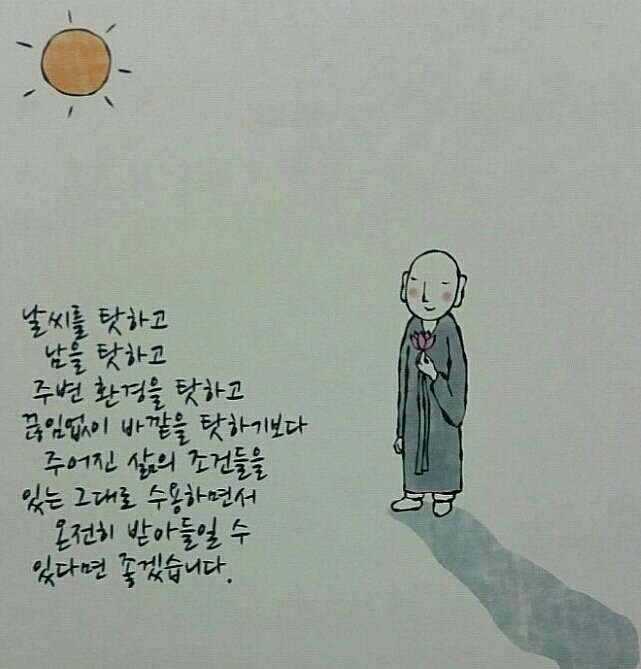 날씨를 탓하고
남을 탓하고
주변 환경을 탓하고
끊임없이 바깥을 탓하기보다
주어진 삶의 조건들을
있는 그대로 수용하면서
온전히 받아들일 수
있다면 좋겠습니다.